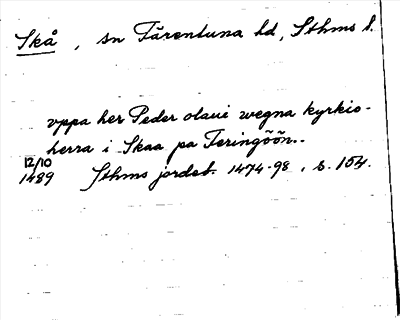 Skå, sn Färentuna hd, Sthms l.
uppa her Peder olaui wegna kyrkio-
herra i Skaa pa Feringöön..
12/10
1489 Sthms jordeb. 1474-98, s. 154.